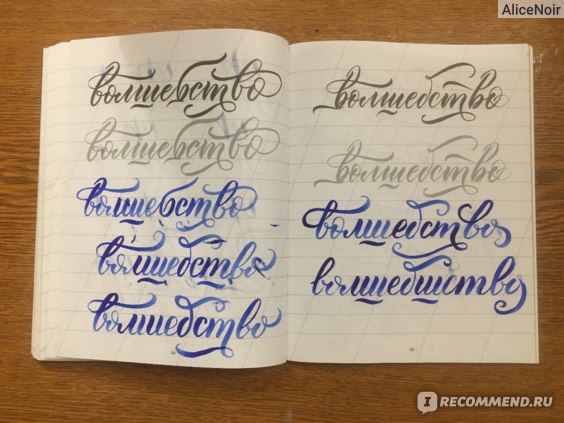 AliceNoir
волшебство
волшебство
волшебство
волшебство
волшебство
волшебство
волшебство
волшебство
волшебство
I RECOMMEND.RU